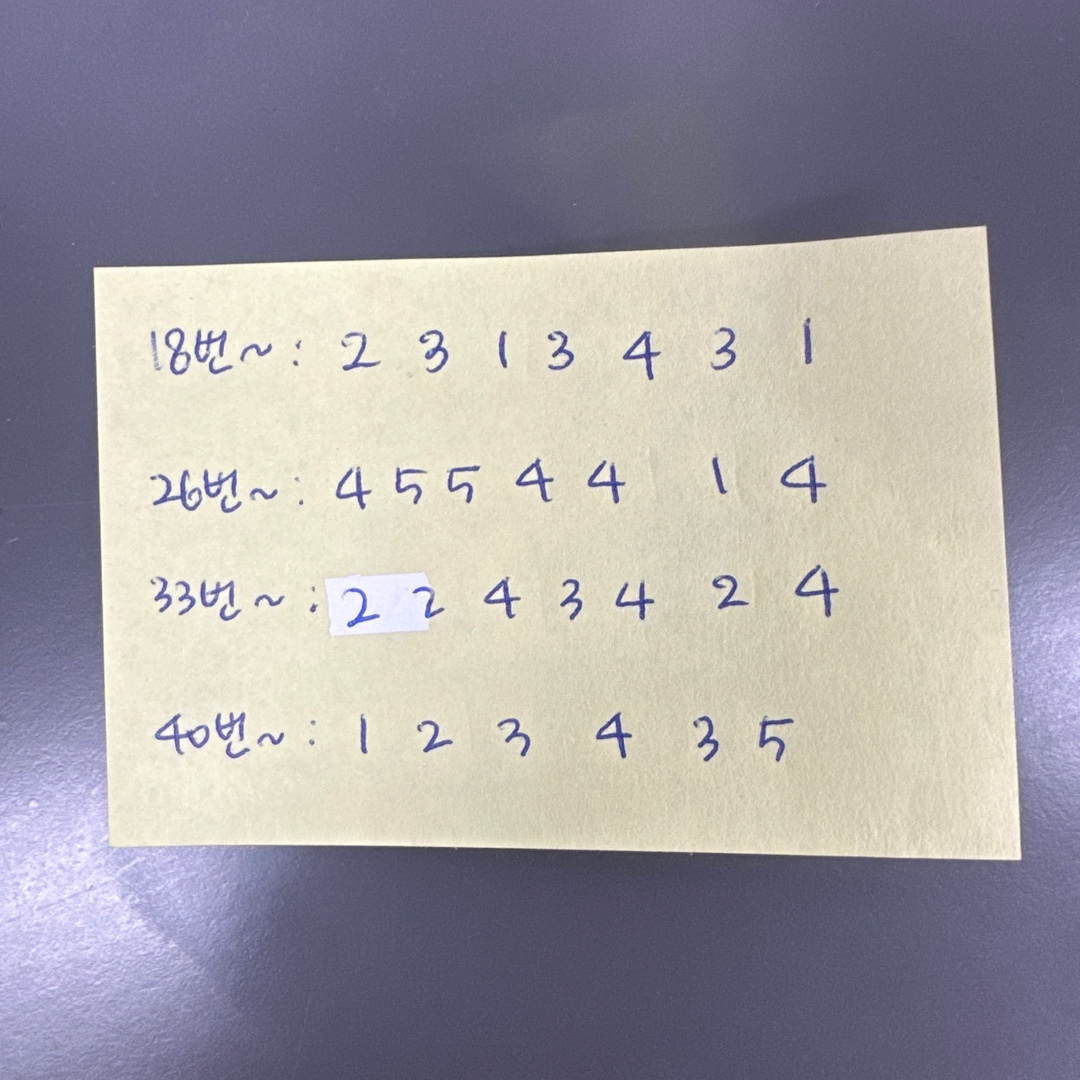 18번~: 2 3 1 3 4 3 1
26번~: 4 5 5 4 4 1 4
33번~: 2 2 4 3 4 2 4
40번~: 1 2 3 4 3 5